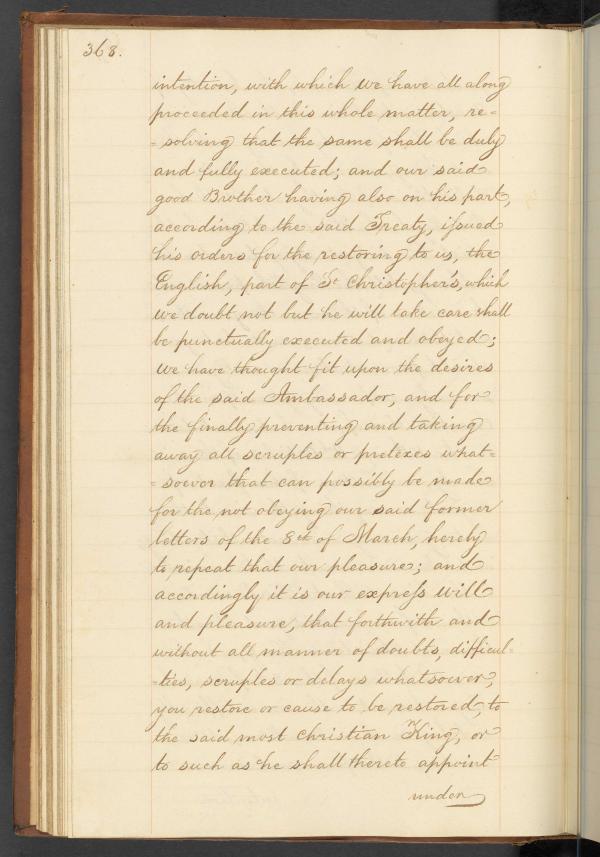 368.
intention, with which we have all along
proceeded in this whole matter, re=
=solving that the same shall be duly
and fully executed; and our said
good Brother having also on his part,
according to the said Treaty, issued
his orders for the restoring to us, the
English, part of St Christopher's, which
we doubt not but he will take care shall
be punctually executed and obeyed;
we have thought fit upon the desires
of the said Ambassador, and for
the finally preventing and taking
away all scruples or pretexes what=
=soever that can possibly be made
for the not obeying our said former
letters of the 8th of March, hereby
to repeat that our pleasure; and
accordingly it is our express will
and pleasure, that forthwith and
without all manner of doubts, difficul=
=ties, scruples or delays whatsoever,
you restore or cause to be restored, to
the said most Christian King, or
to such as he shall thereto appoint
under